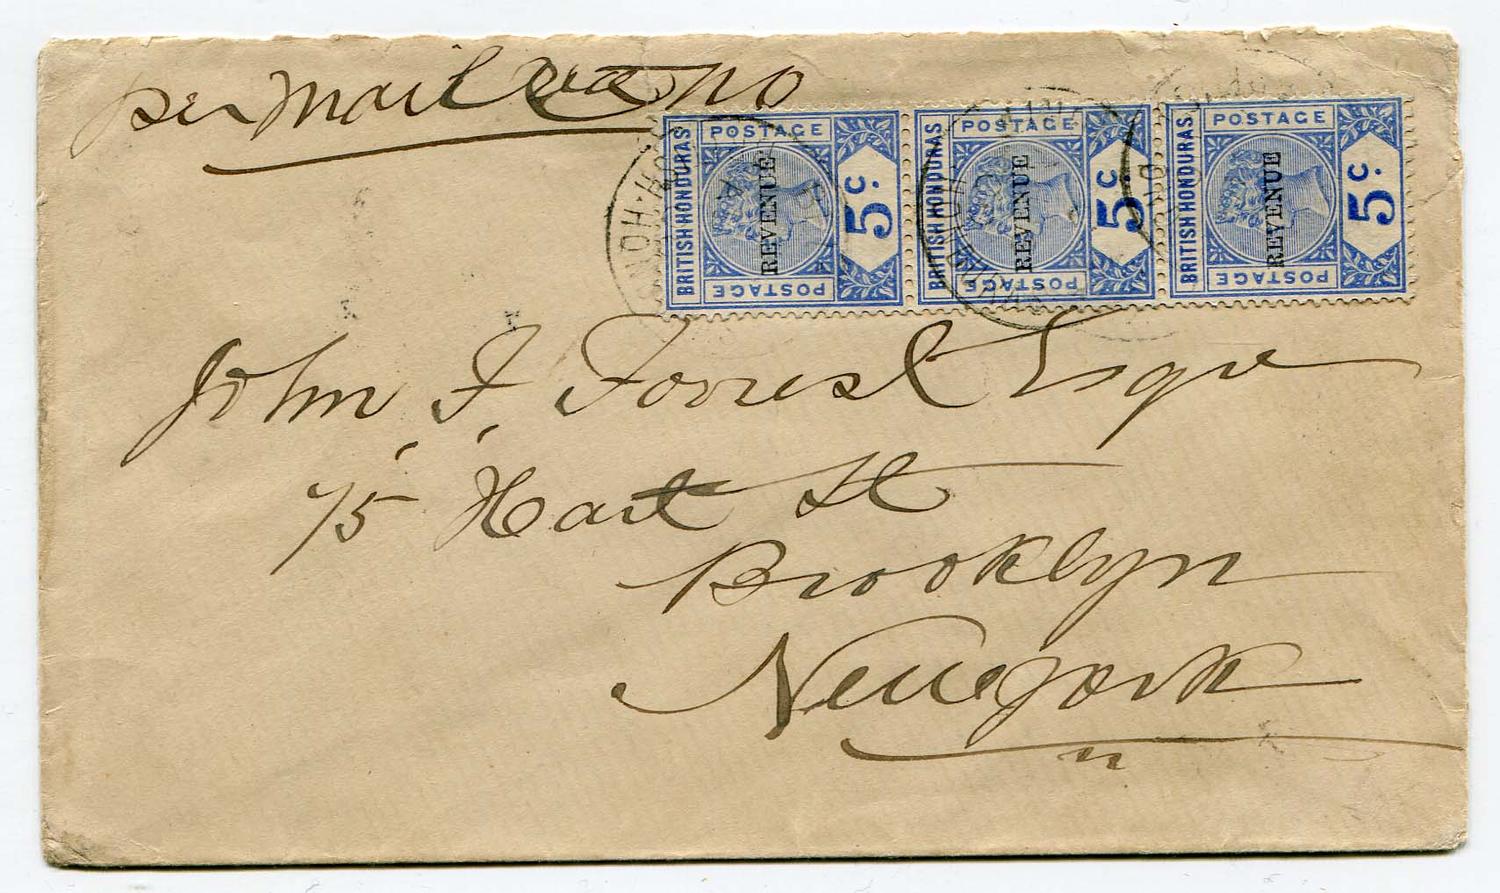 per Mail via NO
POSTAGE
BRITISH HONDURAS
REVENUE
5c.
POSTAGE
POSTAGE
BRITISH HONDURAS
REVENUE
5c.
POSTAGE
POSTAGE
BRITISH HONDURAS
REVENUE
5c.
POSTAGE
John J. Forrest Esqre
75 Hart St
Brooklyn
New york